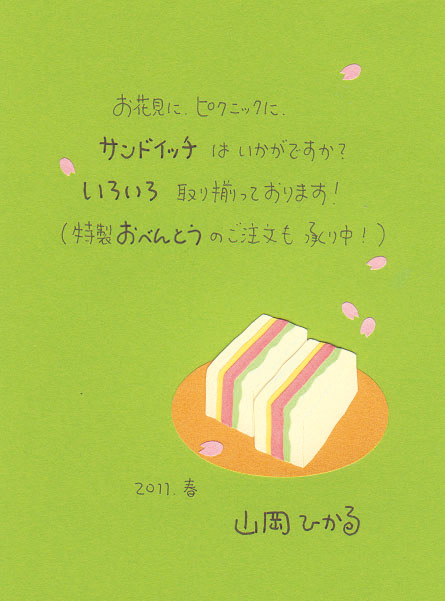 お花見に、ピクニックに、
サンドイッチ は いかがですか?
いろいろ 取り揃っております!
(特製 おべんとう のご注文も 承り中!)
2011. 春
山岡ひかる